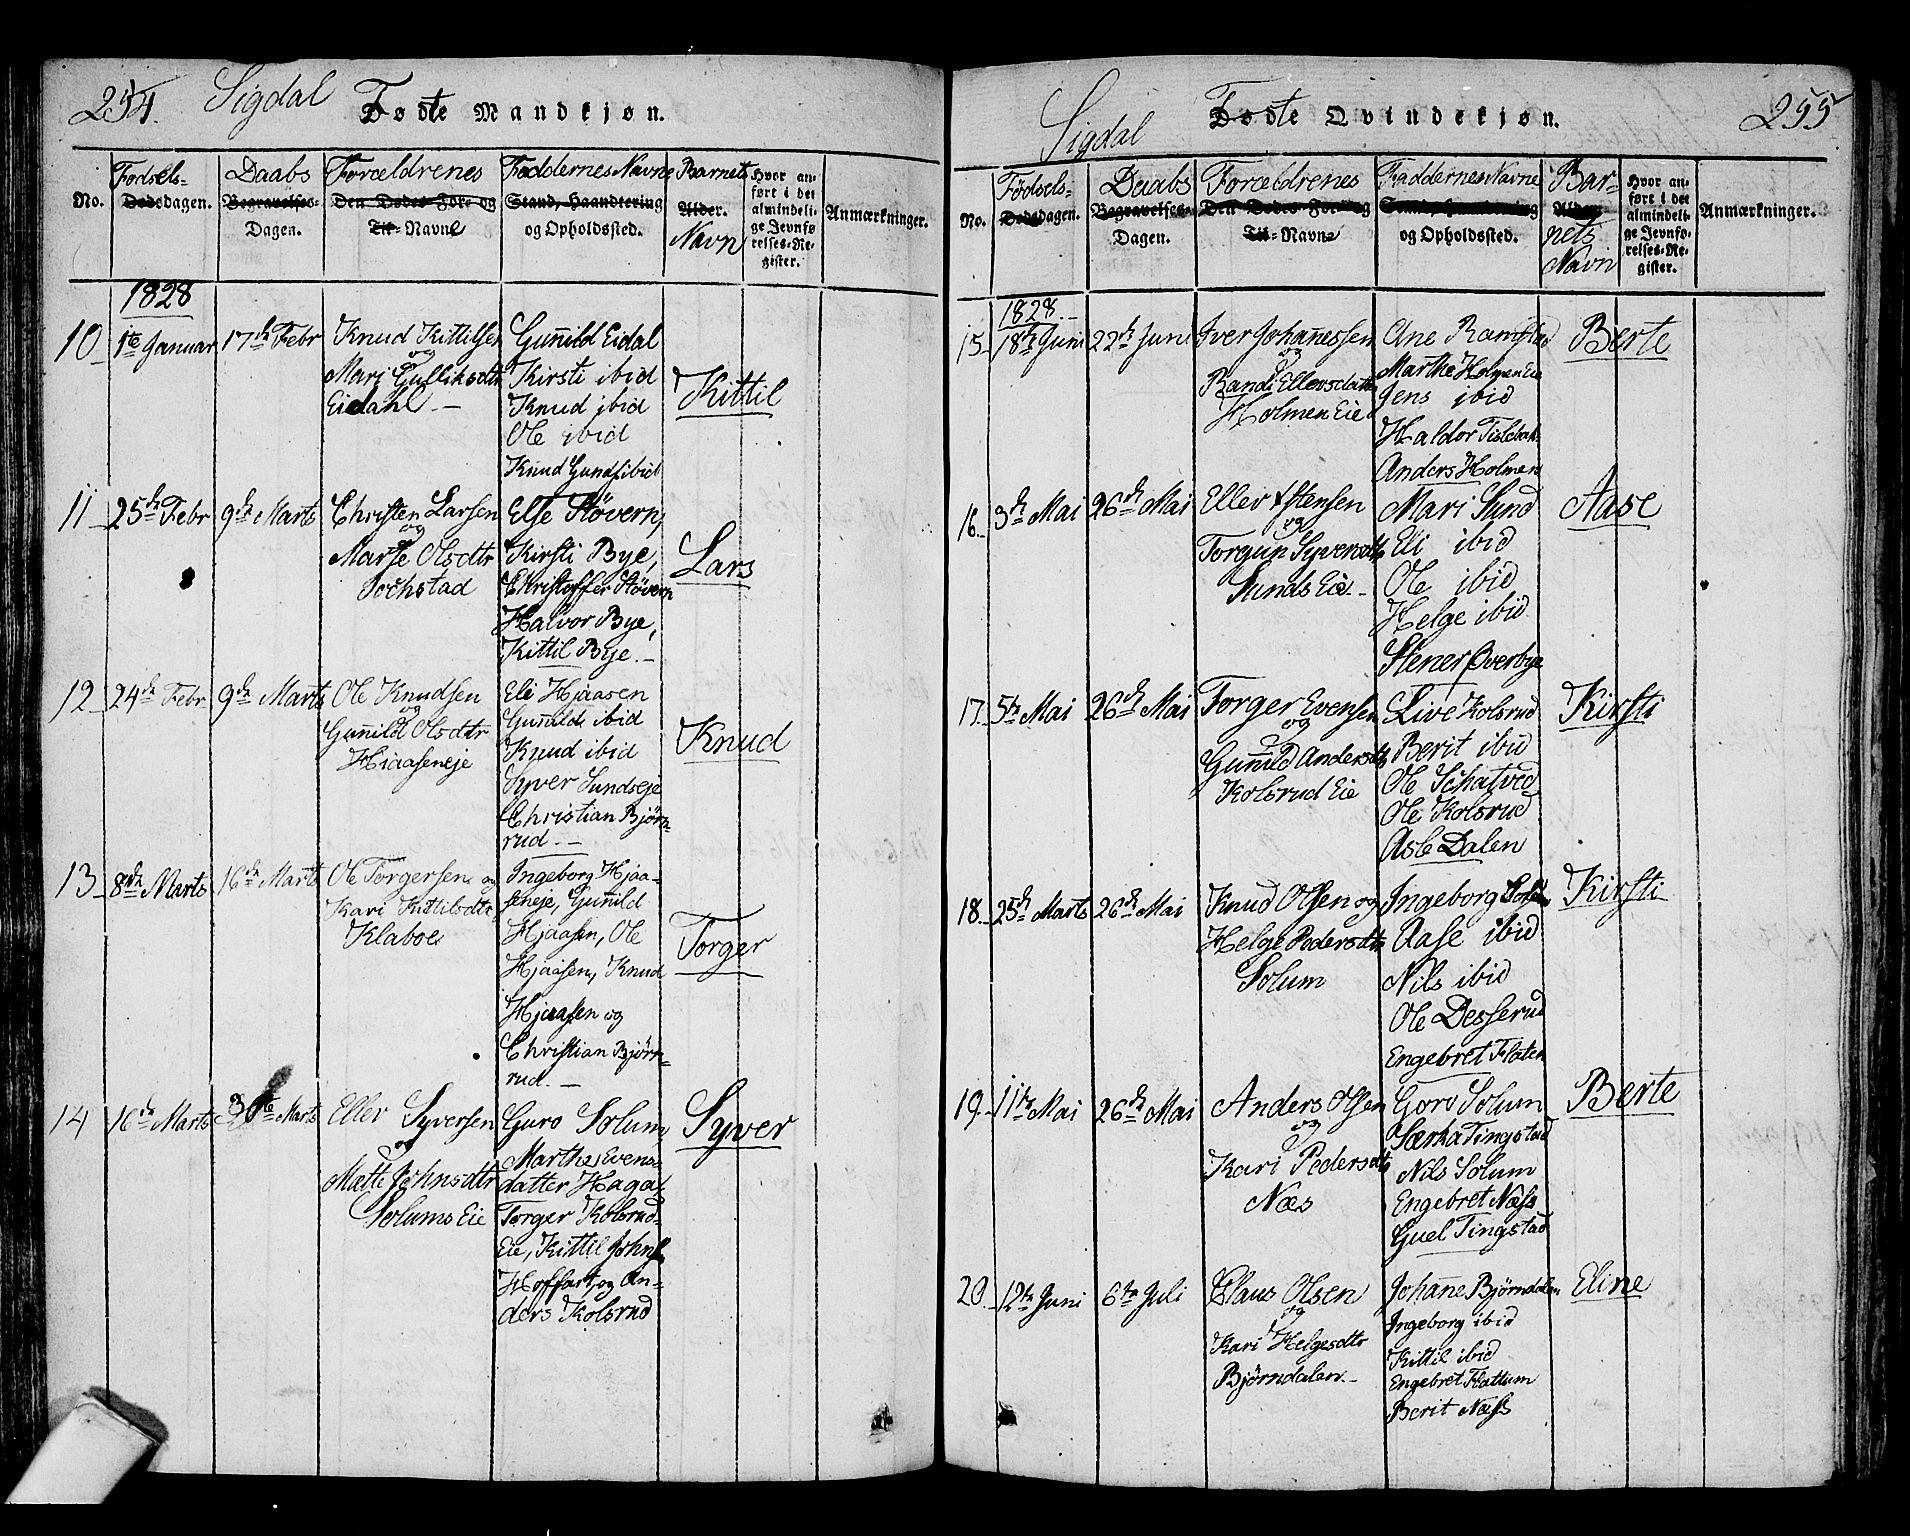 254. Sigdal Fødte Mandkjøn.
No.
Fødsels-
Dødsdagen.
Daabs
Begravelses-
Dagen.
Forældrenes
Den Dødes For- og
Til-Navne
Faddernes Navne
Stand, Haandtering
og Opholdssted.
Barnets
Alder.
Navn
Hvor an-
ført i det
almindeli-
ge Jevnfø-
relses-Re-
gister.
Anmærkninger.
1828
10 1te Januar 17de Febr
Knud Kittilsen
og
Mari Gulliksdtr
Eidahl. –
Guñild Eidal
Kirsti ibid
Knud ibid
Ole ibid
Knud Gunds ibid
Kittil
11 25de Febr 9de Marts
Christen Larsen
og
Marte Olsdtr
Sochstad
Else Støvern,
Kirsti Bye,
Christoffer Støvern
Halvor Bye,
Kittil Bye. –
Lars
12 24de Febr. 9de Marts
Ole Knudsen
og
Guñild Olsdtr
Hiaaseneje
Eli Hjaasen
Guñild ibid
Knud ibid
Syver Sundseje
Christian Bjørn-
rud. –
Knud
13 8de Marts 16de Marts
Ole Torgersen og
Kari Kittilsdtr
Klaboe
Ingeborg Hjaa-
seneje, Guñild
Hjaasen, Ole
Hjaasen, Knud
Hjaasen og
Christian Bjørn-
rud. –
Torger
14 16de Marts 30te Marts
Ellev Syversen
og
Mætte Johnsdtr
Solums Eie
Guro Solum
Marthe Evens-
datter Haga,
Torger Kolsrud-
Eie, Kittil Johns
Hoffart, og An-
ders Kolsrud
Syver
255
Sigdal Fødte Qvindekjøn.
No.
Fødsels-
Dødsdagen.
Daabs
Begravelses-
Dagen.
Forældrenes
Den Dødes For- og
Til-Navne
Faddernes Navne
Stand, Haandtering
og Opholdssted.
Bar-
Alder.
nets
Navn
Hvor an-
ført i det
almindeli-
ge Jevnfø-
relses-Re-
gister.
Anmærkninger.
1828. –
15. 18de Juni 22de Juni
Iver Johañessen
og
Randi Ellevsdatter
Holmen Eie
Ane Ramstad
Marthe Holmen Eie
Jens ibid
Haldor Tislebak
Anders Holmen
Berte
16. 3de Mai 26de Mai
Ellev Stensen
og
Torgun Syversdtr
Sunds Eie. –
Mari Sund
Eli ibid
Ole ibid
Helge ibid
Stener Øverbye
Aase
17. 5te Mai 26de Mai
Torger Evensen
og
Guñild Andersdtr
Kolsrud Eie
Live Kolsrud
Berit ibid
Ole Schatved
Ole Kolsrud
Asle Dalen
Kirsti
18. 25de Marts 26de Mai
Knud Olsen og
Helge Pedersdtr
Solum
Ingeborg Solum
Aase ibid
Nils ibid
Ole Desserud
Engebret Flaten
Kirsti
19. 11te Mai 26de Mai
Anders Olsen
og
Kari Pedersdtr
Næs
Goro Solum
Særka Tingstad
Nils Solum
Engebret Næss
Guel Tingstad
Berte
20. 12te Juni 6te Juli
Claus Olsen
og
Kari Helgesdtr
Bjørndalen. –
Johañe Bjørndalen
Ingeborg ibid
Kittil ibid
Engebret Flattum
Berit Næss
Eline